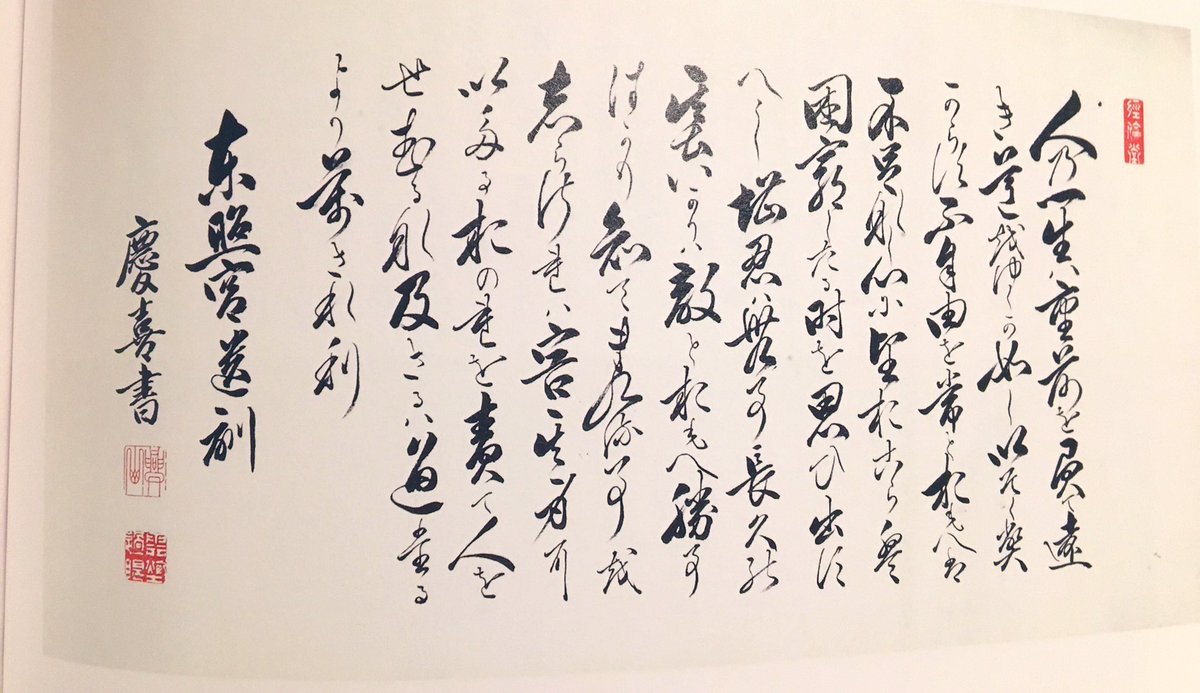 人乃一生ハ重荷を負て遠
き道越ゆくか如しいそく遍
からす不自由を常とおもへは
不足那し心に望おこらは
困窮したる時を思ひ出す
へし堪忍ハ無事長久能
基いかりハ敵とおもへ勝事
はかり知てまくる事越
志らされハ害其身に
いたるおのれを責て人を
せむる那及さるハ過たる
よりまされ利
東照宮遺訓
慶喜書